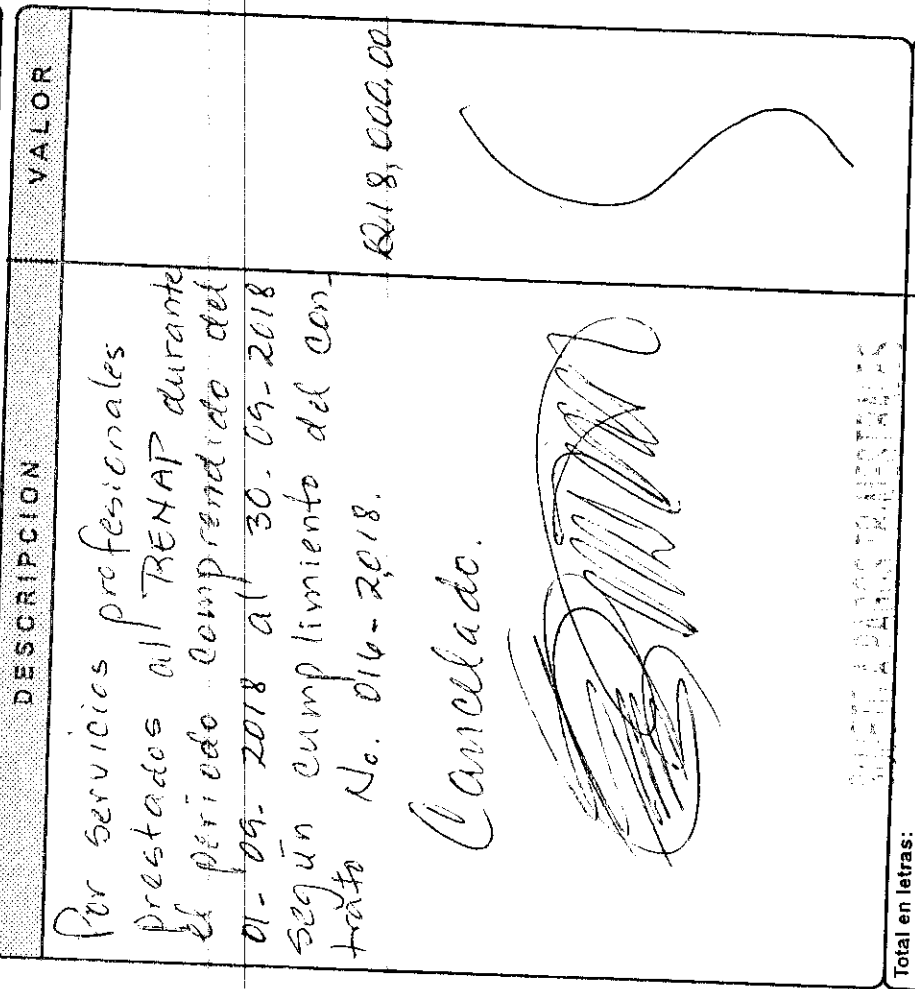 DESCRIPCION
VALOR
Por servicios profesionales
prestados al RENAP durante
el periodo comprendido del
01-09-2018 al 30-09-2018
según cumplimiento del con-
trato No. 016-2,018.
Q18,000.00
Cancelado.
Total en letras: